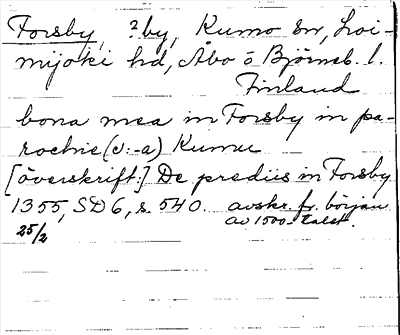 Forsby, ?by, Kumo sn, Loi-
mijoki hd, Åbo o Björneb. l.
Finland
bona mea in Forsby in pa-
rochie (ɔ: -a) Kumu
[överskrift:] De prediis in Forsby
1355, SD 6, s. 540. avskr. fr. början
25/2 av 1500-talet.